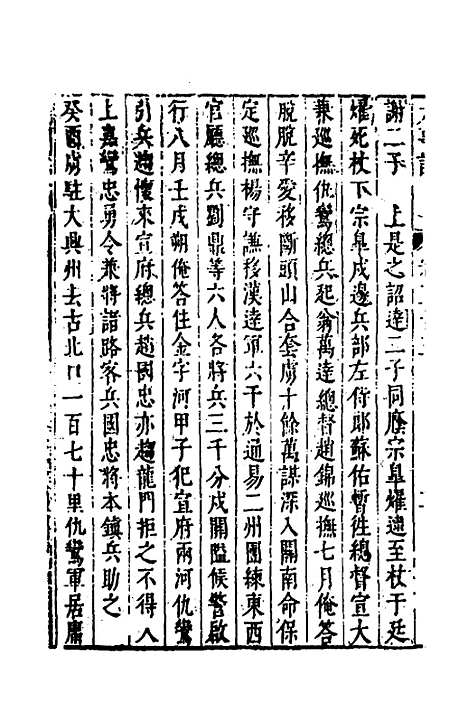 謝二子　上是之詔逮二子同廕宗臯燿逮至杖于廷
燿死杖下宗臯戍邊兵部左侍郎蘇佑暫往總督宣大
兼巡撫仇鸞總兵起翁萬達總督趙錦巡撫七月俺答
脫脫辛愛移斷頭山合套虜十餘萬謀深入關南命保
定巡撫楊守謙移漢達軍六千於通易二州團練東西
官廳總兵劉鼎等六人各將兵三千分戍關隘候警啟
行八月壬戌朔俺答住金字河甲子犯宣府兩河仇鸞
引兵趨懷來宣府總兵趙國忠亦趨龍門拒之不得入
上嘉鸞忠勇令兼將諸路客兵國忠將本鎮兵助之
癸酉虜駐大興州去古北口一百七十里仇鸞軍居庸